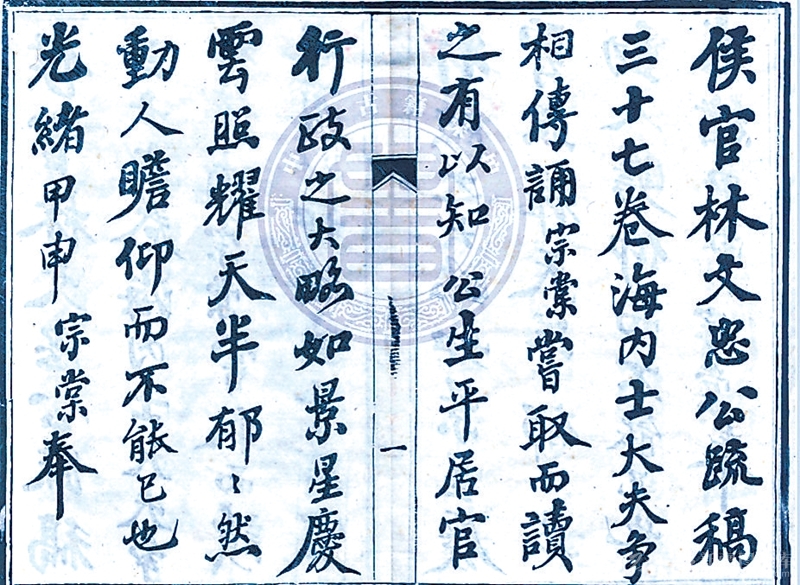 侯官林文忠公疏稿
三十七卷海內士大夫爭
相傳誦宗棠嘗取而讀
之有以知公生平居官
一
行政之大略如景星慶
雲照耀天半郁〻然
動人瞻仰而不能已也
光緒甲申宗棠奉